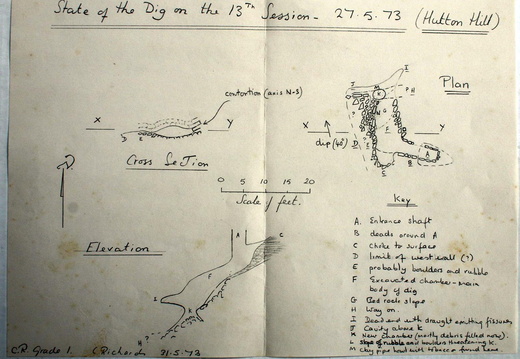 State of the Dig on the 13TH Session - 27.5.73 (Hutton Hill)
contortion (axis N-S)
Plan
X Y
D E
Cross SeTion
X Y
dip (40°)
0 5 10 15 20
Scale of feet.
Key
Elevation
A. Entrance shaft
B deads around A
C choke to surface
D limit of west wall (?)
E probably boulders and rubble
F Excavated chamber - main body of dig
G Bed rock slope
H Way on.
I Dead end with draught emitting fissure
J Cavity above K
K New Chamber (mostly debris filled now).
L slope of rubble and boulders threatening K.
M Clay pipe bowl with tobacco found here.
C.R. Grade 1. C Richards 31.5.73